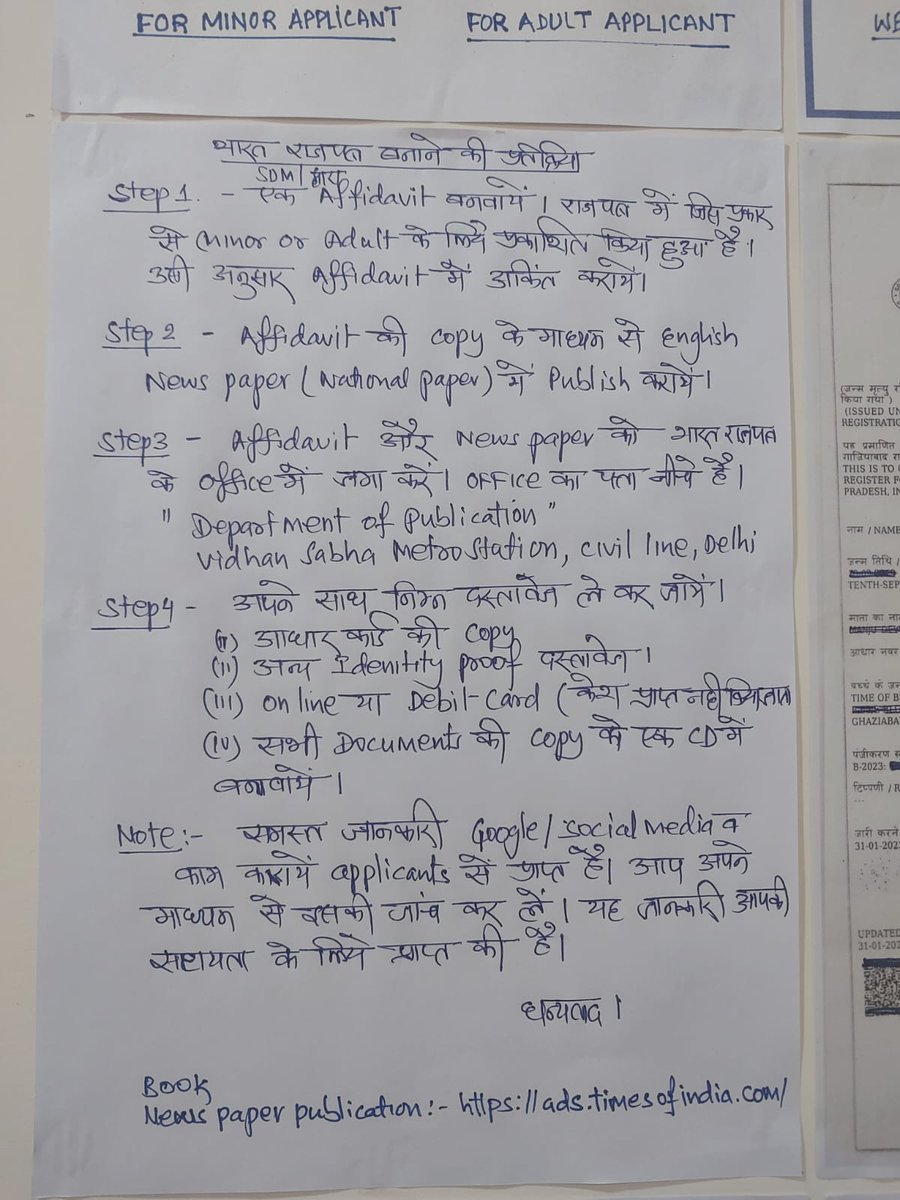 FOR MINOR APPLICANT
FOR ADULT APPLICANT
WE
भारत राजपत्र बनाने की प्रतिक्रिया
SDM/
Step 1. - एक Affidavit बनवायें। राजपत्र में जिस प्रकार
से Minor or Adult के लिये प्रकाशित किया हुआ है।
उसी अनुसार Affidavit में अकिंत करायें।
Step 2 - Affidavit की copy के माध्यम से English
News paper (National paper) में Publish करायें।
Step3 - Affidavit और News paper को भारत राजपत्र
के office में जमा करें। OFFICE का पता नीचे है।
" Department of Publication "
Vidhan Sabha Metro Station, Civil line, Delhi
Step4 - अपने साथ निम्न दस्तावेज ले कर जायें।
(i) आधार कार्ड की copy
(ii) अन्य Idenitity proof दस्तावेज।
(iii) online या Debit-Card (केश प्राप्त नही किया जाता
(iv) सभी Documents की copy को एक CD में
बनवायें।
Note:- समस्त जानकारी Google/social media व
काम करायें applicants से प्राप्त है। आप अपने
माध्यम से इसकी जांच कर लें। यह जानकारी आपकी
सहायता के लिये प्राप्त की है।
धन्यवाद।
BOOK
News paper publication:- https://ads.timesofindia.com/
(जन्म मृत्यु र
किया गया )
(ISSUED UN
REGISTRATIO
यह प्रमाणित
गाजियाबाद रा
THIS IS TO
REGISTER F
PRADESH, IN
नाम / NAME
जन्म तिथि /
TENTH-SEP
माता का ना
आधार नंबर
बच्चे के जन
TIME OF B
GHAZIABA
पंजीकरण स
B-2023:
टिप्पणी / R
जारी करने
31-01-202
UPDATED
31-01-202